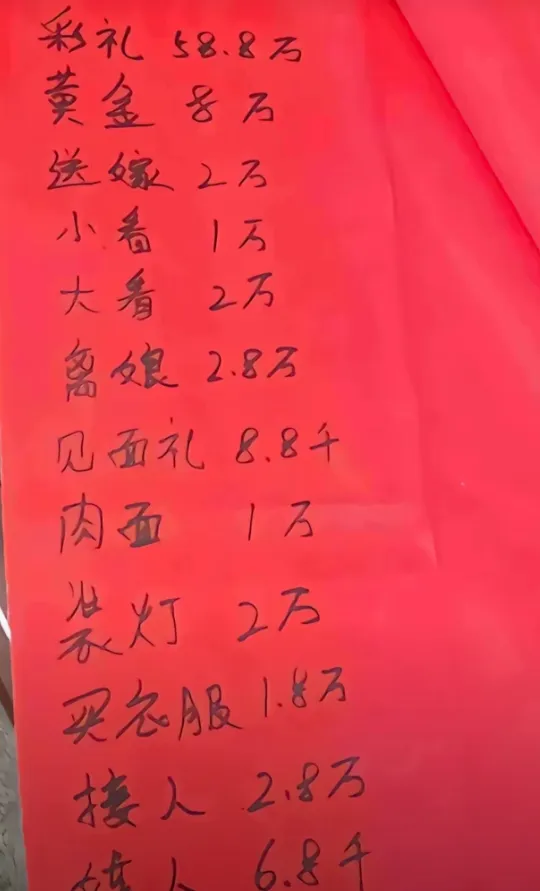 彩礼 58.8万
黄金 8万
送嫁 2万
小看 1万
大看 2万
离娘 2.8万
见面礼 8.8千
肉面 1万
装灯 2万
买衣服 1.8万
接人 2.8万
媒人 6.8千